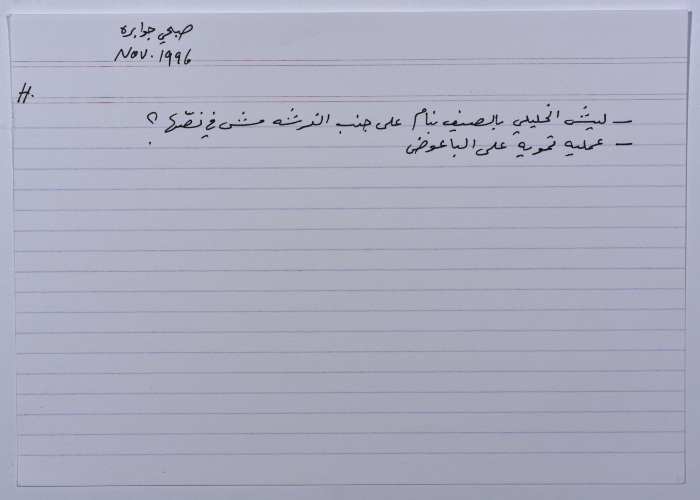 صبحي جوابره
Nov. 1996
H.
– ليش الخليلي بالصيف بنام على جنب الفرشه مش في نصّها ؟
– عمليه تمويه على الباعوض.